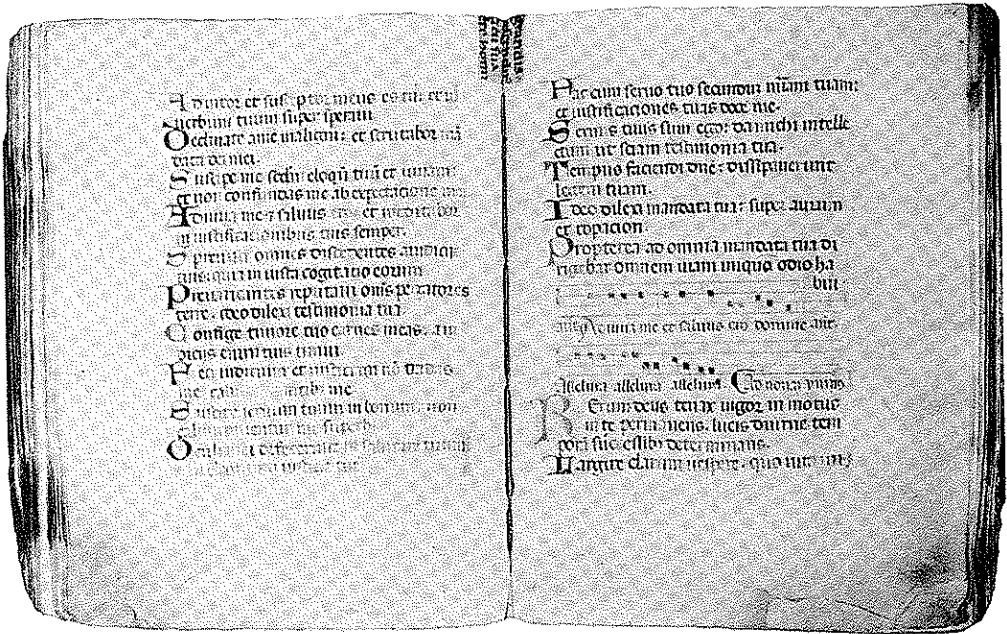 Adiutor et susceptor meus es tu: et in
uerbum tuum super speraui
Declinate a me maligni: et scrutabor mā
data dei mei.
Suscipe me scdm eloqū tuū et uiuam:
et non confundas me ab expectacione
Adiuua me et saluus ero et meditabor
in iustificationibus tuis semper.
Spreuisti omnes discedentes a iudiciis
tuis: quia iniusta cogitatio eorum
Preuaricantes reputaui omīs peccatores
terre. ideo dilexi testimonia tua.
Confige timore tuo carnes meas. a iu
diciis enim tuis timui
Feci iudicium et iusticiam nō tradas
me me
Suscipe seruum tuum in bonum. non
calumpnientur me superbi
Oculi mei defecerunt in salutare tuum
Fac cum seruo tuo secundum miām tuam:
et iustificaciones tuas doce me.
Seruus tuus sum ego: da michi intelle
ctum ut sciam testimonia tua.
Tempus faciendi dne: dissipauerunt
legem tuam.
Ideo dilexi mandata tua: super aurum
et topacion.
Propterea ad omnia mandata tua di
rigebar omnem uiam iniquā odio ha
bui
Adiuua me et saluus ero domine
Alleluia alleluia alleluia Ad nonam
Rerum deus tenax uigor in motus
in te permanens. lucis diurne tem
pora successibus determinans.
Largire clarum uespere. quo uita